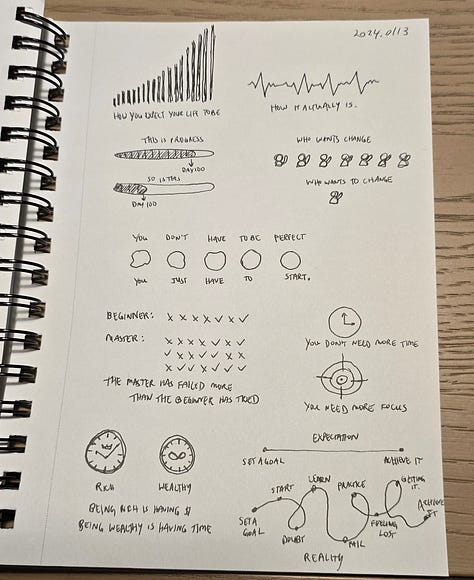 2024.01.13
HOW YOU EXPECT YOUR LIFE TO BE
HOW IT ACTUALLY IS.
THIS IS PROGRESS
DAY 100
SO IS THIS
DAY 100
WHO WANTS CHANGE
WHO WANTS TO CHANGE
YOU DON'T HAVE TO BE PERFECT
YOU JUST HAVE TO START.
BEGINNER: X X X X ✓ X ✓
MASTER: X X ✓ X X X X
✓ X X ✓ ✓ X X
X X X ✓ X ✓ ✓
THE MASTER HAS FAILED MORE
THAN THE BEGINNER HAS TRIED
YOU DON'T NEED MORE TIME
YOU NEED MORE FOCUS
RICH
WEALTHY
BEING RICH IS HAVING $
BEING WEALTHY IS HAVING TIME
EXPECTATION
SET A GOAL
ACHIEVE IT
SET A GOAL
START
DOUBT
LEARN
FAIL
PRACTICE
FEELING LOST
GETTING IT.
ACHIEVE IT
REALITY